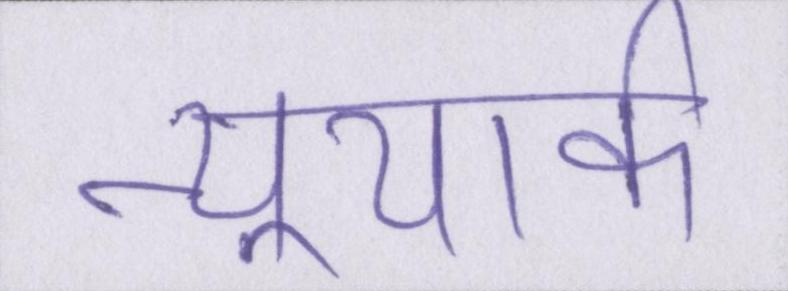 न्यूयार्क